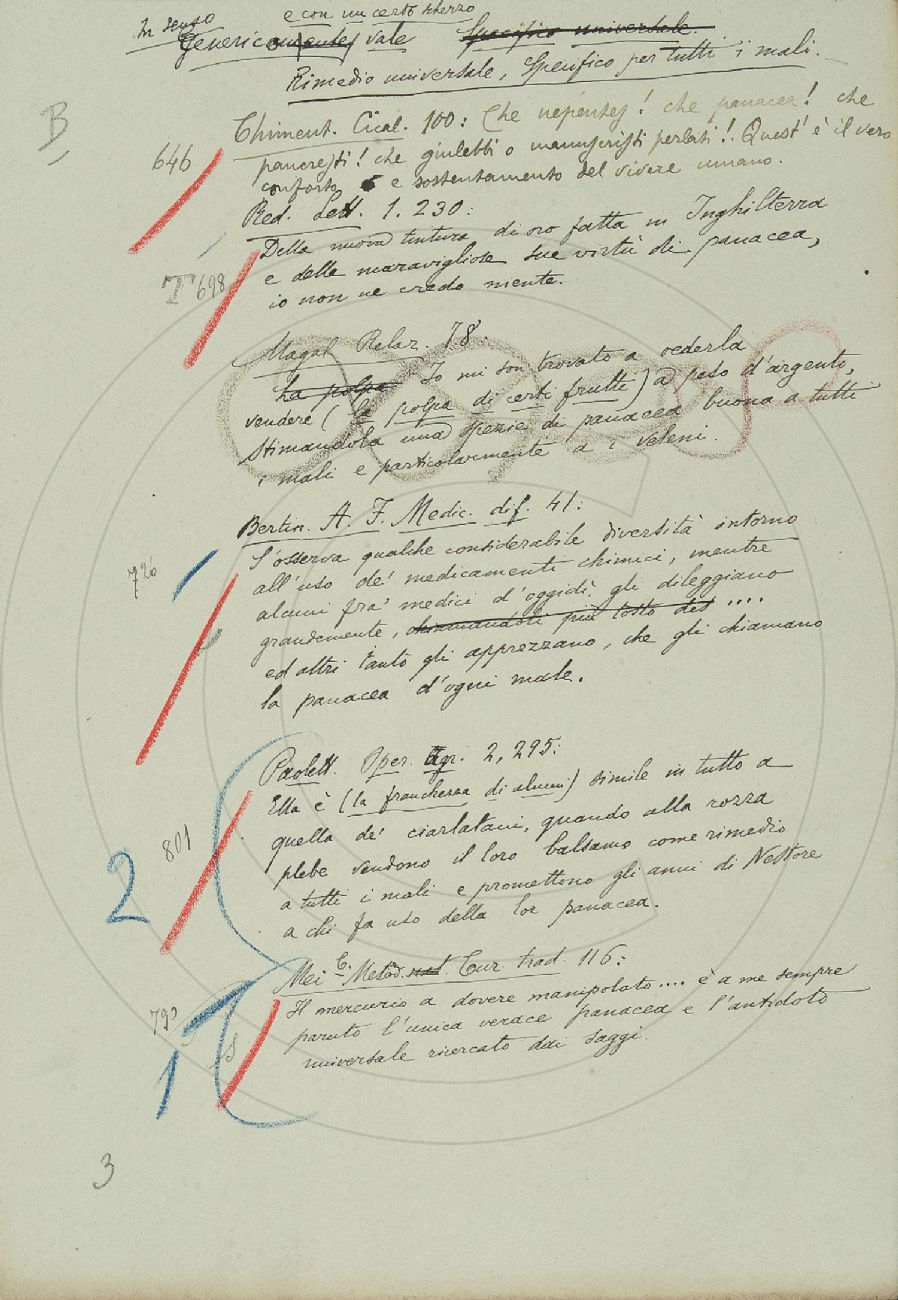 In senso e con un certo scherzo
Genericamente, vale Specifico universale.
Rimedio universale, Specifico per tutti i mali.
B
646
Chiment. Cical. 100: Che nepentes! che panacea! che
pancresti! che giulebbi o manuscristi perlati! Quest' è il vero
conforto e sostentamento del vivere umano.
Red. Lett. 1. 230:
T 698
Della nuova tintura di oro fatta in Inghilterra
e delle maravigliose sue virtù di panacea,
io non ne credo niente.
Magal. Relaz. 78:
La polpa Io mi son trovato a vederla
vendere (la polpa di certi frutti) a peso d'argento,
stimandola una spezie di panacea buona a tutti
i mali e particolarmente a' veleni.
Bertin. A. F. Medic. dif. 41:
S'osserva qualche considerabile diversità intorno
720
all'uso de' medicamenti chimici, mentre
alcuni fra' medici d'oggidì gli dileggiano
grandemente, chiamandoli più tosto des ....
ed altri tanto gli apprezzano, che gli chiamano
la panacea d'ogni male.
Paolett. Oper. Agr. 2, 295:
Ella è (la franchezza di alcuni) simile in tutto a
801
quella de' ciarlatani, quando alla rozza
2
plebe vendono il loro balsamo come rimedio
a tutti i mali e promettono gli anni di Nestore
a chi fa uso della lor panacea.
Mei C. Metod. Cur. trad. 116:
790
Il mercurio a dovere manipolato .... è a me sempre
paruto l'unica verace panacea e l'antidoto
universale ricercato dai saggi.
3